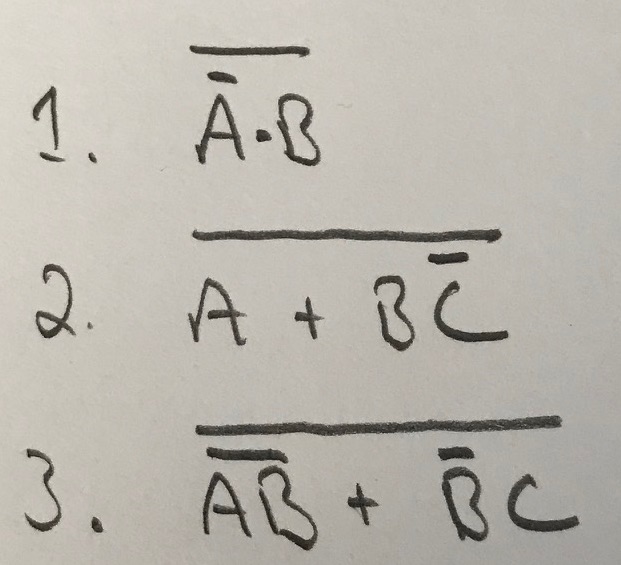 1. $\overline{\bar{A} \cdot B}$
2. $\overline{A + B\bar{C}}$
3. $\overline{\overline{AB} + \bar{B}C}$